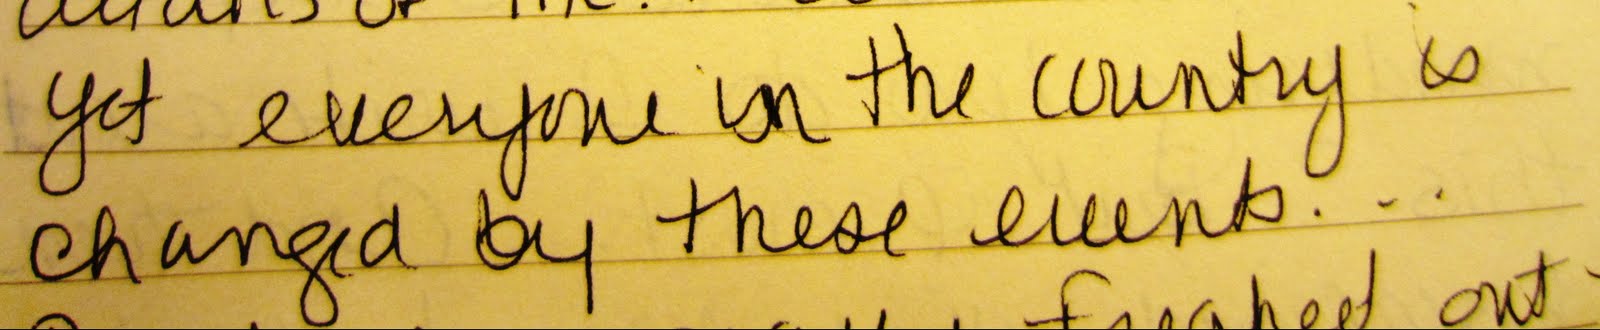 yet everyone in the country is
changed by these events...
freaked out